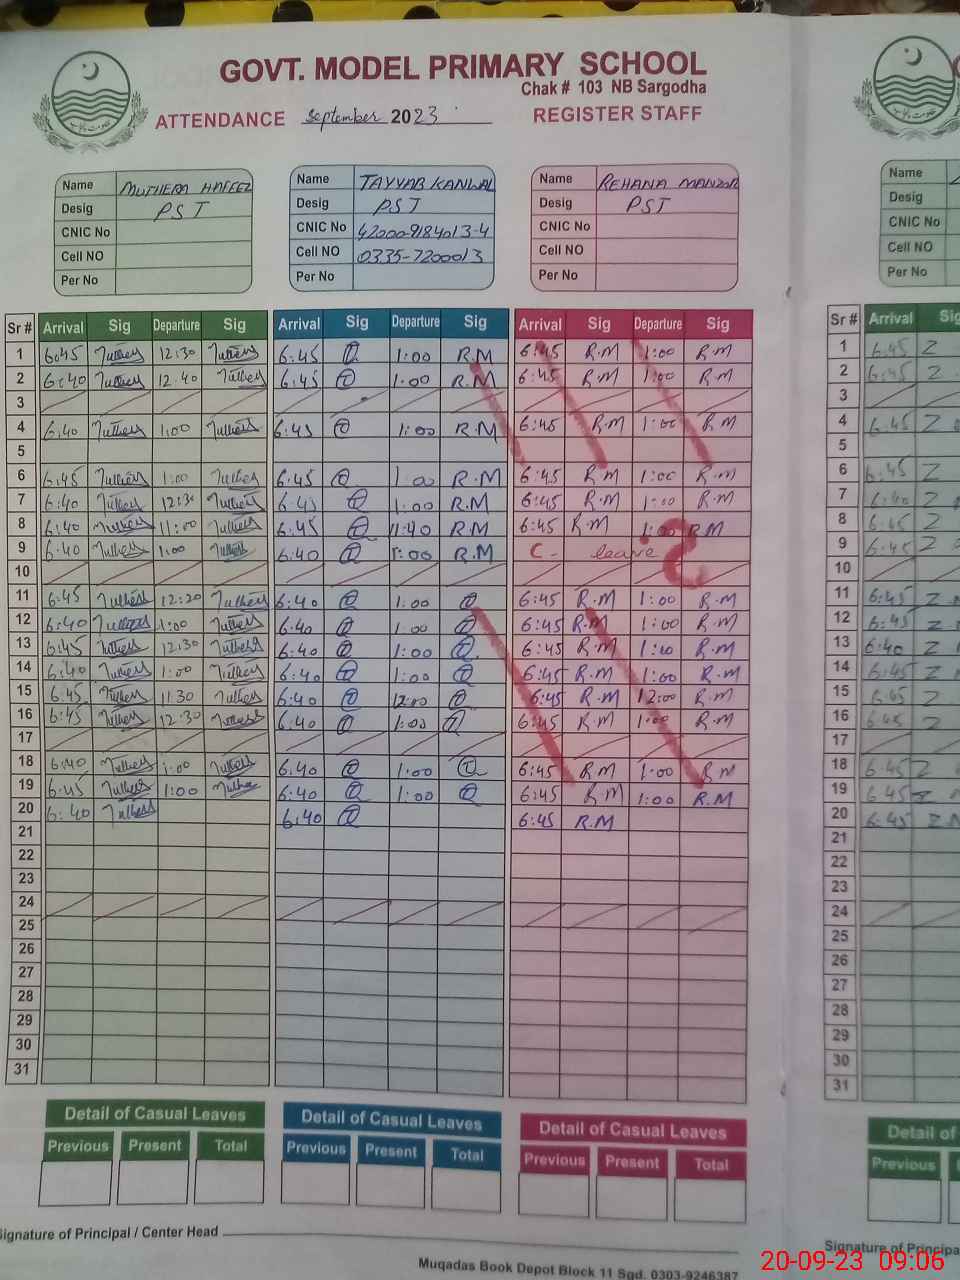 GOVT. MODEL PRIMARY SCHOOL
Chak # 103 NB Sargodha
ATTENDANCE September 2023 REGISTER STAFF
Name MUTHERA HAFEEZ Name TAYYAB KANWAL Name REHANA MANZOR Name
Desig PST Desig PST Desig PST Desig
CNIC No CNIC No 42000-9184013-4 CNIC No CNIC No
Cell NO Cell NO 0335-7200013 Cell NO Cell NO
Per No Per No Per No Per No
Sr # Arrival Sig Departure Sig Arrival Sig Departure Sig Arrival Sig Departure Sig Sr # Arrival Sig
1 6:45 12:30 6:45 1:00 R.M 6:45 R.M 1:00 R.M 1 6:45 Z
2 6:40 12:40 6:45 1:00 R.M 6:45 R.M 1:00 R.M 2 6:45 Z
3 3
4 6:40 1:00 6:45 1:00 R.M 6:45 R.M 1:00 R.M 4 6:45 Z
5 5
6 6:45 1:00 6:45 1:00 R.M 6:45 R.M 1:00 R.M 6 6:45 Z
7 6:40 12:30 6:45 1:00 R.M 6:45 R.M 1:00 R.M 7 6:40 Z
8 6:40 11:00 6:45 11:40 R.M 6:45 R.M R.M 8 6:45 Z
9 6:40 1:00 6:40 1:00 R.M C- leave 9 6:45 Z
10 10
11 6:45 12:20 6:40 1:00 6:45 R.M 1:00 R.M 11 6:45 Z
12 6:40 1:00 6:40 1:00 6:45 R.M 1:00 R.M 12 6:45 Z
13 6:45 12:30 6:40 1:00 6:45 R.M 1:00 R.M 13 6:40 Z
14 6:40 1:00 6:40 1:00 6:45 R.M 1:00 R.M 14 6:45 Z
15 6:45 11:30 6:40 12:00 6:45 R.M 12:00 R.M 15 6:45 Z
16 6:45 12:30 6:40 1:00 6:45 R.M 1:00 R.M 16 6:45 Z
17 17
18 6:40 1:00 6:40 1:00 6:45 R.M 1:00 R.M 18 6:45 Z
19 6:45 1:00 6:40 1:00 6:45 R.M 1:00 R.M 19 6:45 Z
20 6:40 6:40 6:45 R.M 20 6:45 Z
21 21
22 22
23 23
24 24
25 25
26 26
27 27
28 28
29 29
30 30
31 31
Detail of Casual Leaves Detail of Casual Leaves Detail of Casual Leaves Detail of
Previous Present Total Previous Present Total Previous Present Total Previous
Signature of Principal / Center Head Signature of Principa
Muqadas Book Depot Block 11 Sgd. 0303-9246387
20-09-23 09:06